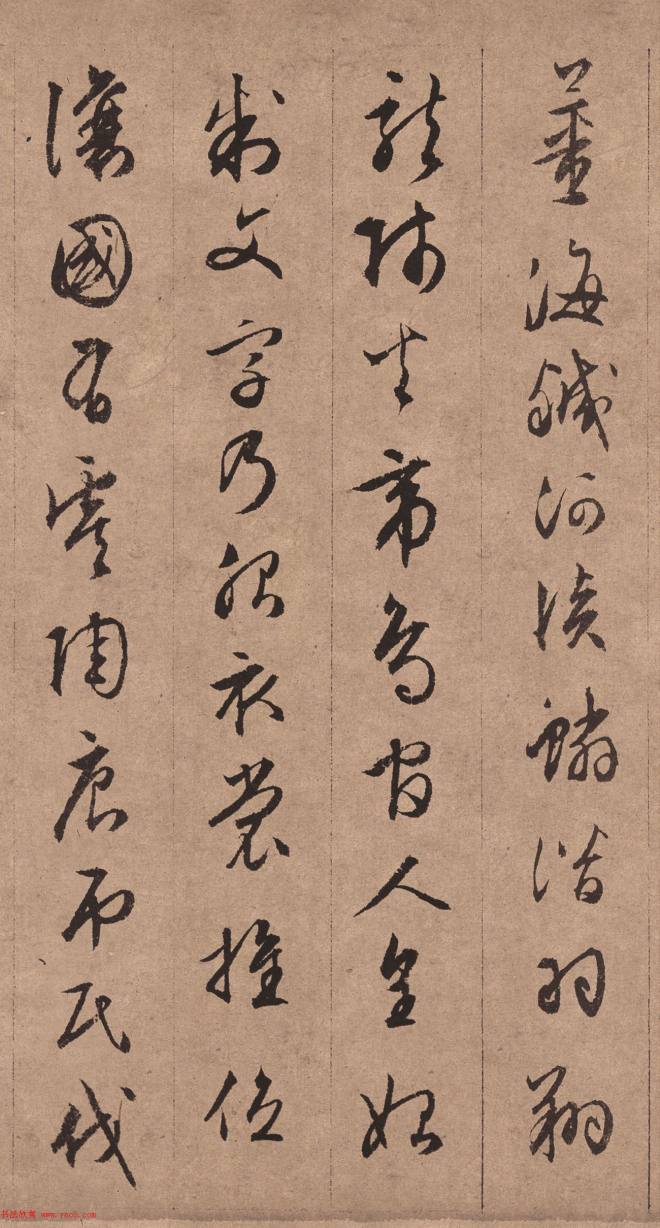 薑海鹹河淡鱗潛羽翔
龍師火帝鳥官人皇始
制文字乃服衣裳推位
讓國有虞陶唐吊民伐
书法欣赏 www.yac8.com